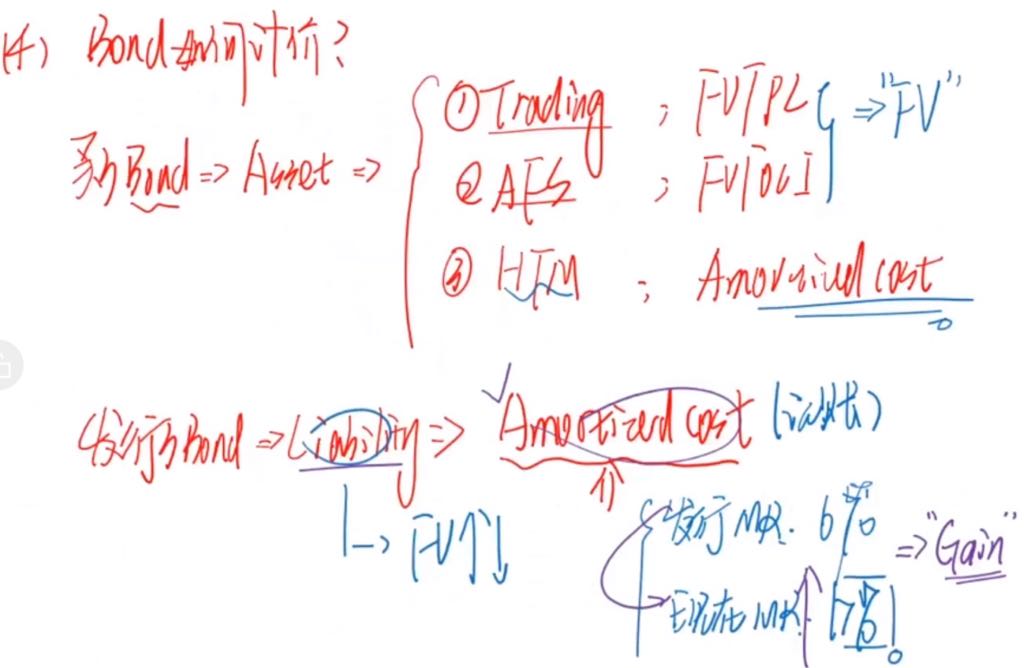 (4) Bond如何计价?
买了Bond => Asset =>
① Trading ; FVTPL
② AFS ; FVTOCI
=> "FV"
③ HTM ; Amortized cost
发行了Bond => Liability => √ Amortized cost
↳ FV↑↓
发行MR. 6%
现在MR↑ 17%!
=> "Gain"